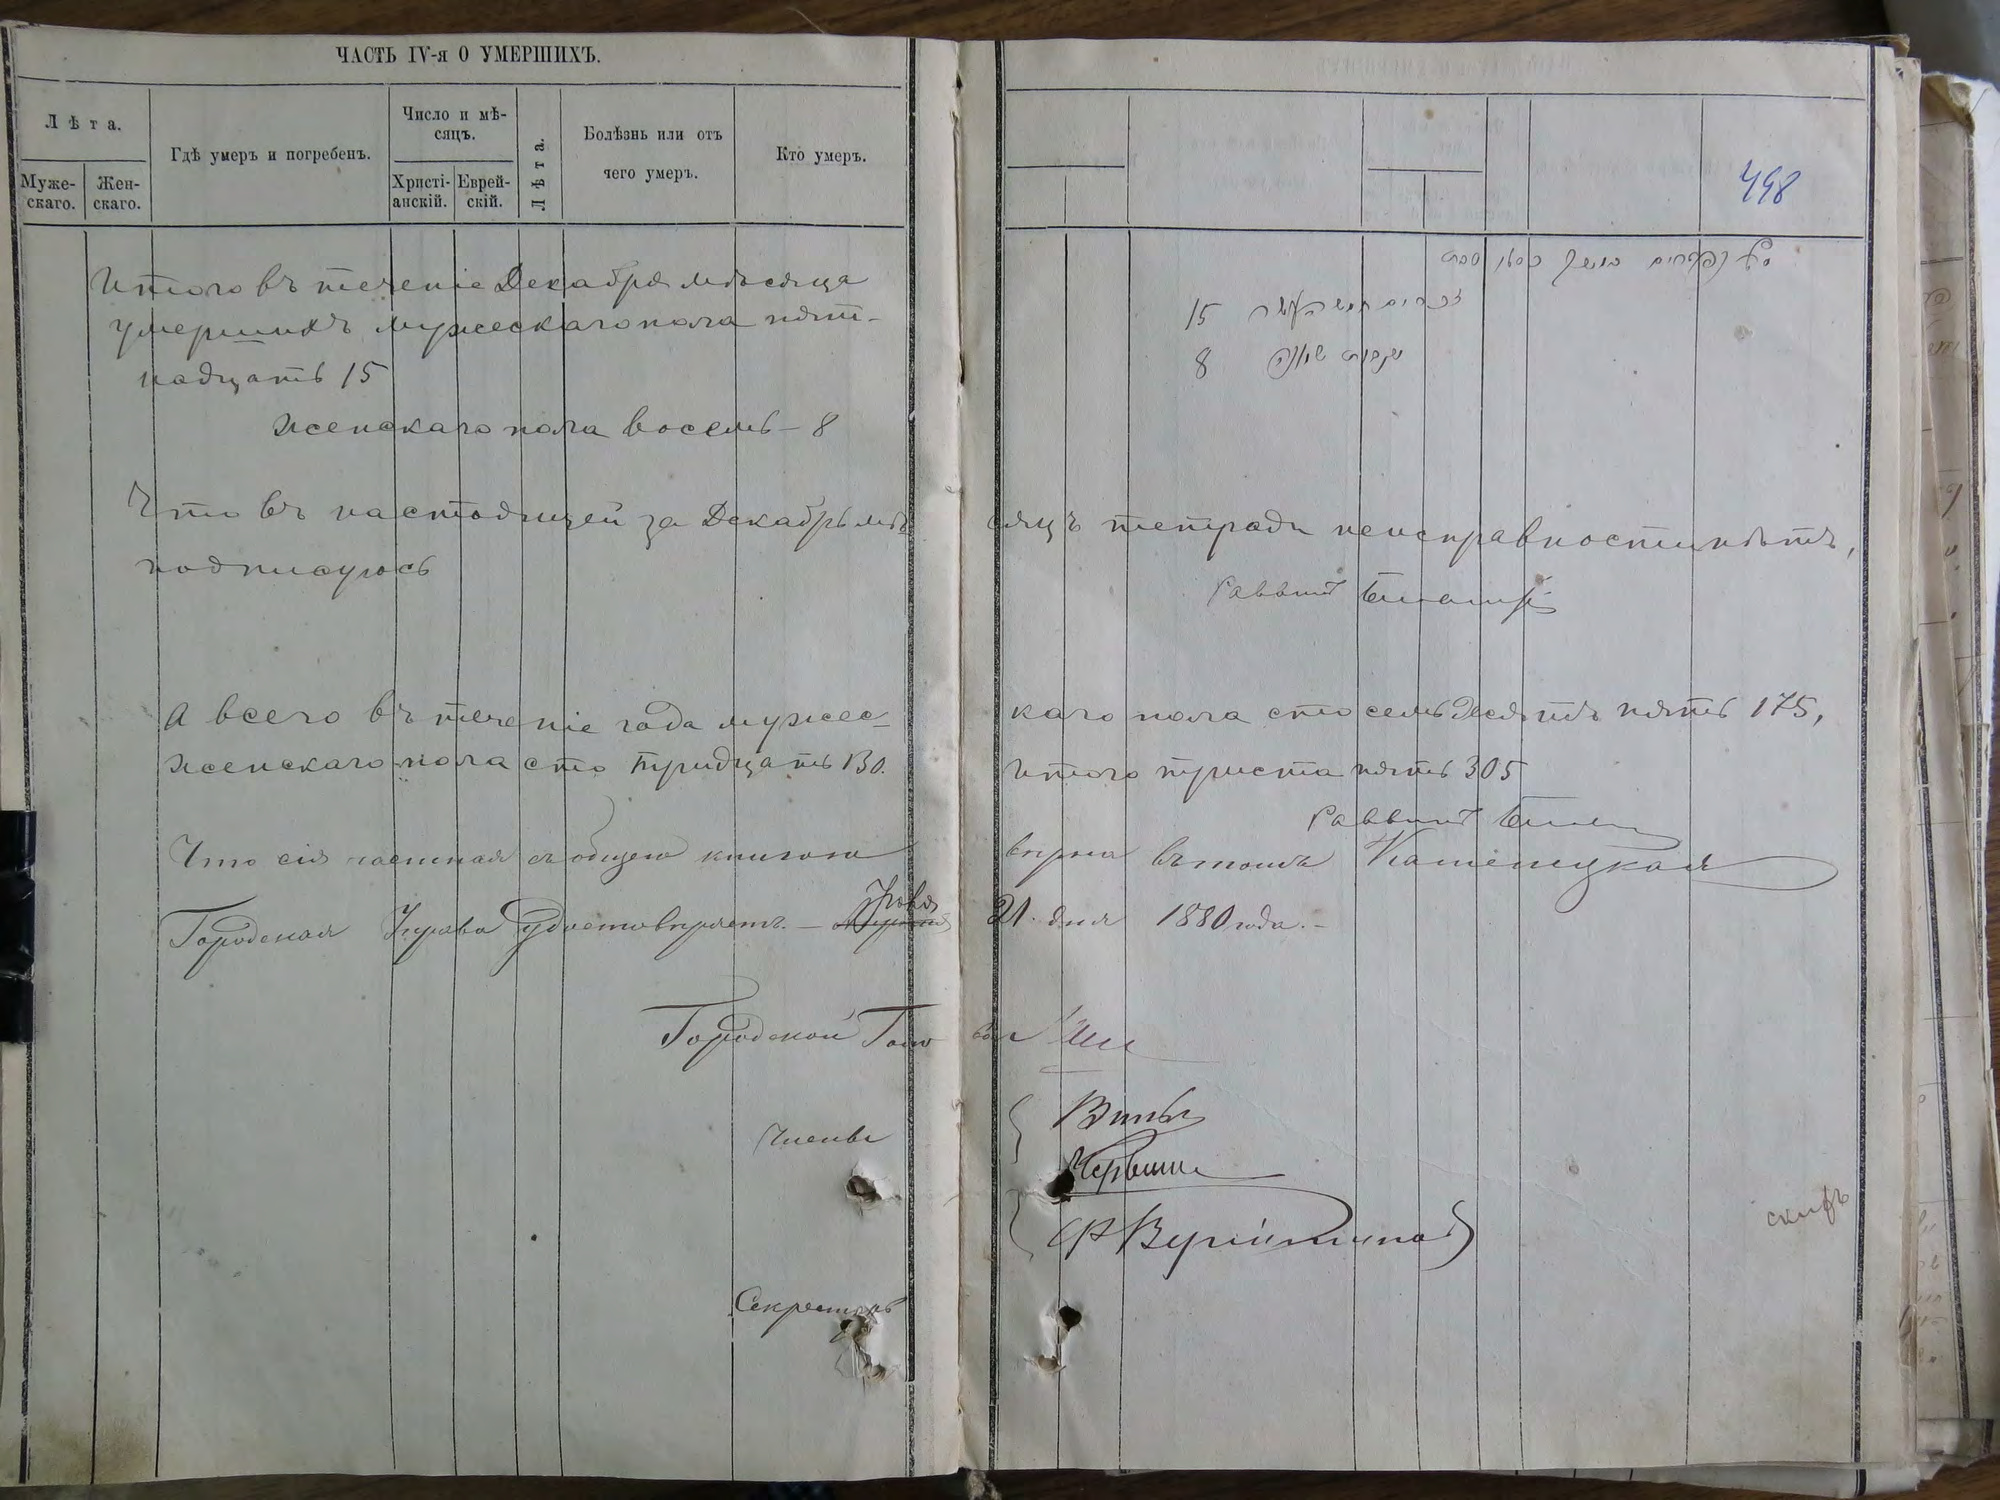 ЧАСТЬ IV-я О УМЕРШИХЪ.
Лѣта.
Муже-
скаго.
Жен-
скаго.
Гдѣ умеръ и погребенъ.
Число и мѣ-
сяцъ.
Христі-
анскій.
Еврей-
скій.
Лѣта.
Болѣзнь или отъ
чего умеръ.
Кто умеръ.
498
Итого въ теченіе Декабря мѣсяца
умершихъ мужескаго пола пят-
надцать 15
женскаго пола восемь - 8
15
8 שמונה
Что въ настоящей за Декабрь мѣ- сяцъ тетради неисправности нѣтъ,
подписуюсь
Раввинъ
А всего въ теченіе года мужес- каго пола сто семьдесятъ пять 175,
женскаго пола сто тридцать 130. Итого триста пять 305
Раввинъ
Что сія частная съ общею книгою вѣрна въ томъ Каменецкая
Городская Управа удостовѣряетъ. - 21. дня 1880 года. -
Городской Голова
Члены
Секретарь